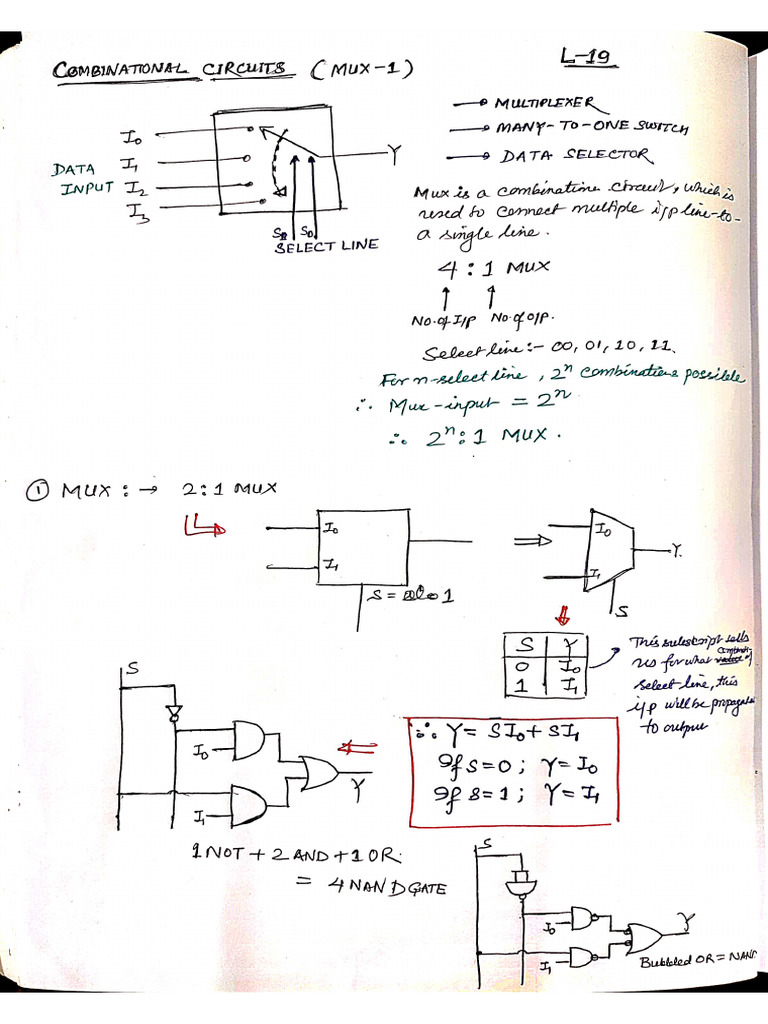 COMBINATIONAL CIRCUITS (MUX-1)
L-19
I0
I1
I2
I3
DATA
INPUT
Y
S1 S0
SELECT LINE
MULTIPLEXER
MANY-TO-ONE SWITCH
DATA SELECTOR
Mux is a combinatinn circuit, which is
used to connect multiple i/p line-to-
a single line.
4 : 1 MUX
↑ ↑
No. of I/p No. of o/p.
Select line :- 00, 01, 10, 11.
For n-select line, 2^n combinations possible
∴ Mux-input = 2^n.
∴ 2^n : 1 MUX.
① MUX : → 2:1 MUX
I0
I1
S = 1
⇒
I0
I1
Y
S
S Y
0 I0
1 I1
This subscript tells
us for what combi. of
select line, this
i/p will be propagate
to output
S
I0
I1
Y
∴ Y = SI0 + SI1
If S=0 ; Y = I0
If S=1 ; Y = I1
1 NOT + 2 AND + 1 OR.
= 4 NAND GATE
S
I0
I1
Y
Bubbled OR = NAND